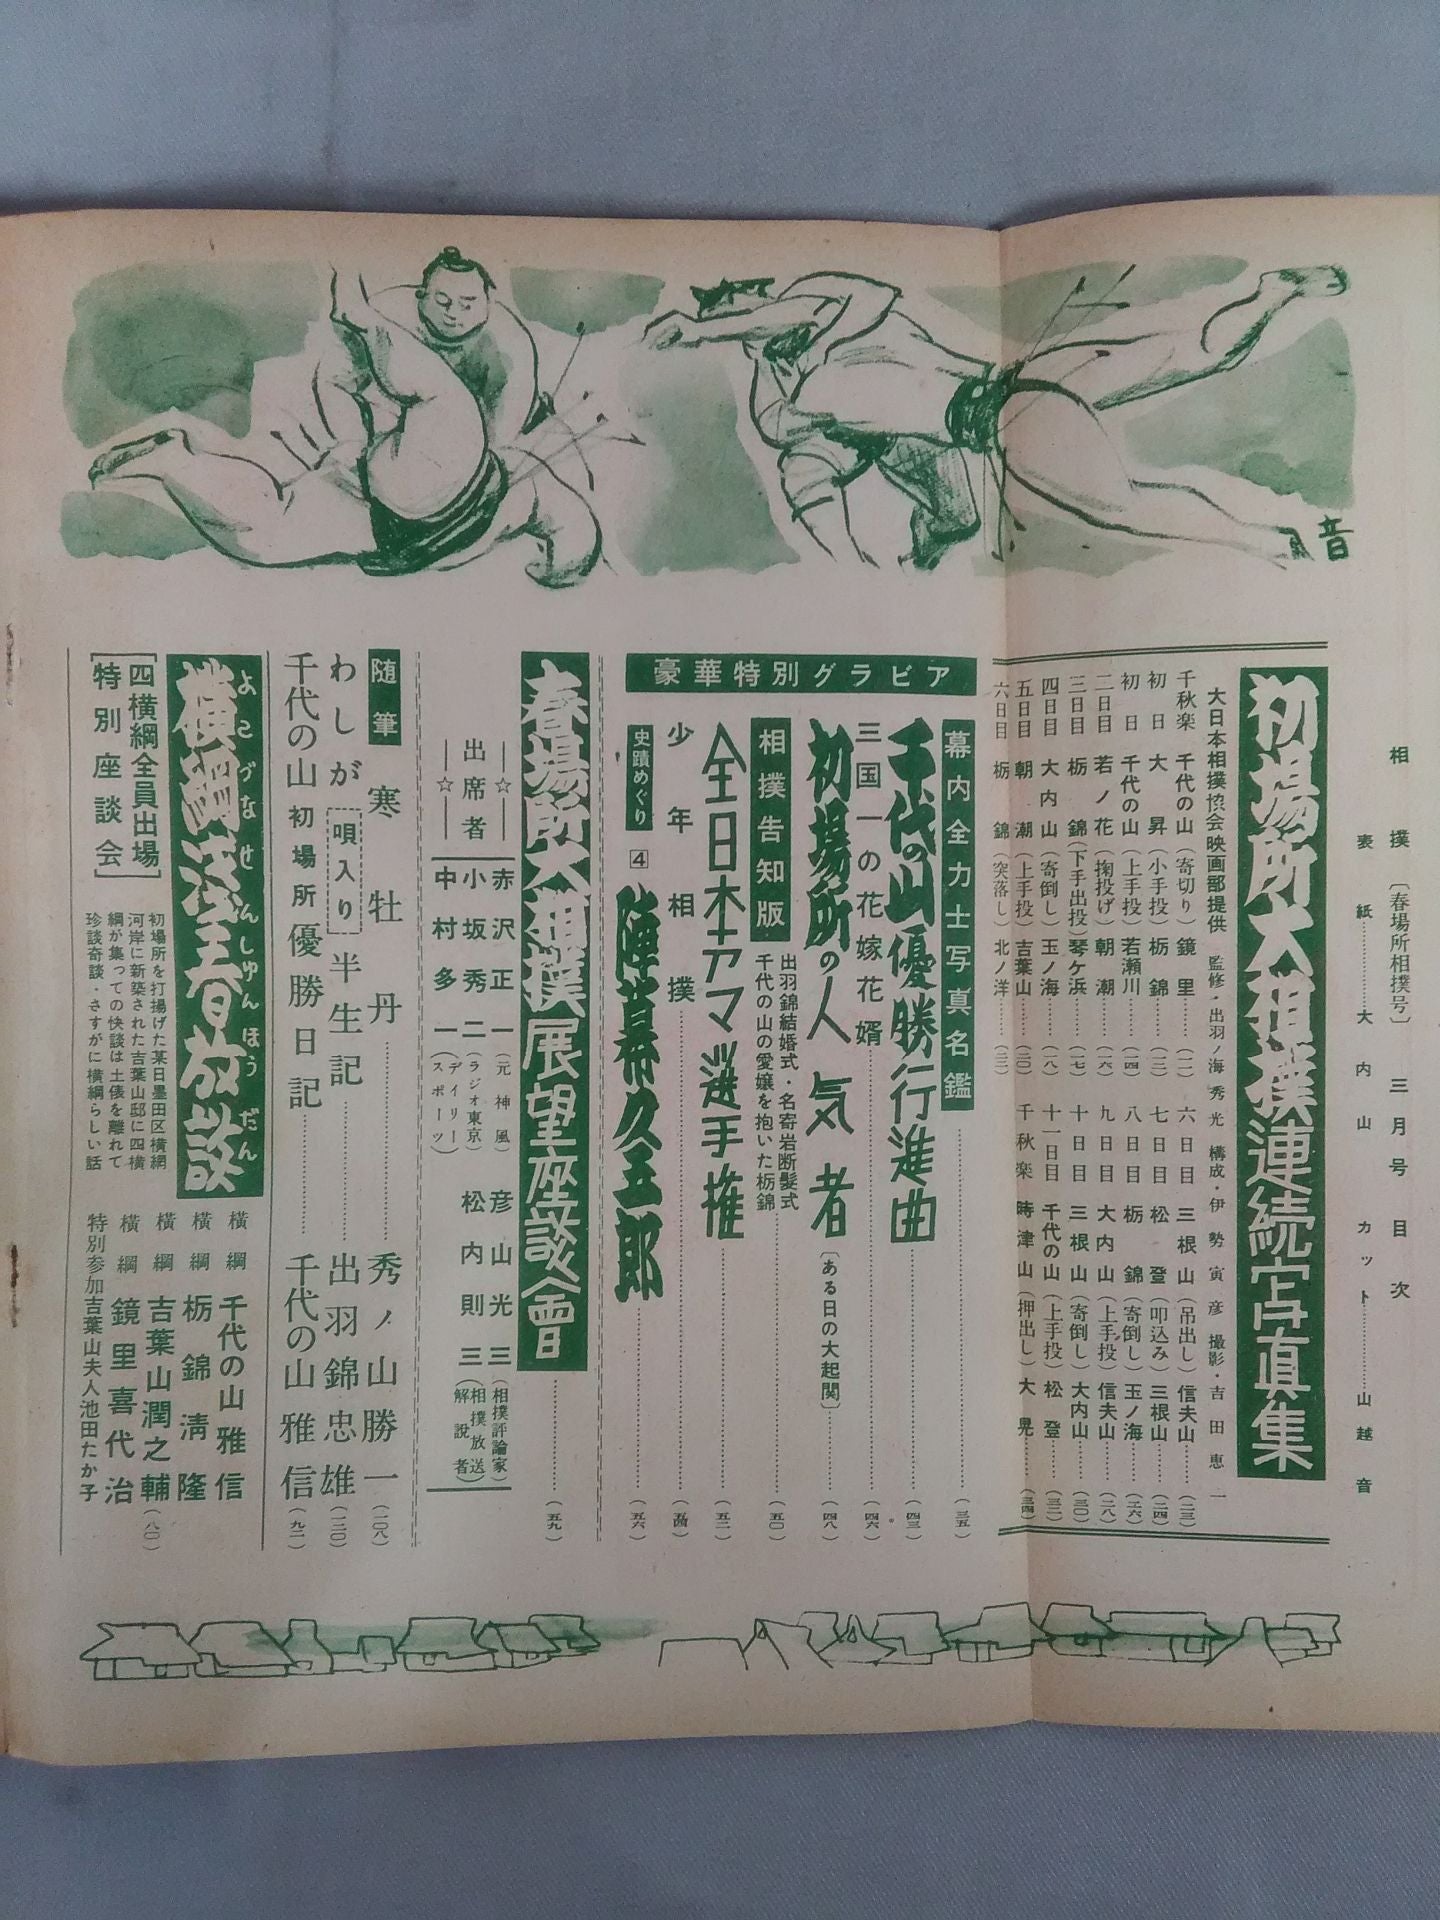 相撲〔春場所相撲号〕 三月号 目次
表紙…………大内山 カット…………山越音
初場所大相撲連続写真集
大日本相撲協会映画部提供 監修・出羽ノ海秀光 構成・伊勢寅彦 撮影・吉田恵一
千秋楽 千代の山(寄切り)鏡里……(二二)
初日 大昇(小手投)栃錦……(三)
初日 千代の山(上手投)若瀬川……(一四)
二日目 若ノ花(掬投げ)朝潮……(一六)
三日目 栃錦(下手出投)琴ケ浜……(一七)
四日目 大内山(寄倒し)玉ノ海……(一八)
五日目 朝潮(上手投)吉葉山……(二〇)
六日目 栃錦(突落し)北ノ洋……(二二)
六日目 三根山(吊出し)信夫山……(二三)
七日目 松登(叩込み)三根山……(二四)
八日目 栃錦(寄倒し)玉ノ海……(二六)
九日目 大内山(上手投)信夫山……(二八)
十日目 三根山(寄倒し)大内山……(三〇)
十一日目 千代の山(上手投)松登……(三二)
千秋楽 時津山(押出し)大晃……(三四)
豪華特別グラビア
幕内全力士写真名鑑……(三五)
千代の山優勝行進曲……(四三)
三国一の花嫁花婿……(四六)
初場所の人気者〔ある日の大起関〕……(四八)
相撲告知版 出羽錦結婚式・名寄岩断髪式
千代の山の愛嬢を抱いた栃錦……(五〇)
全日本アマ選手権……(五二)
少年相撲……(五四)
史蹟めぐり 4 陣幕久五郎……(五六)
春場所大相撲展望座談會……(五九)
―☆―
出席者
―☆―
赤沢正一(元神風)
小坂秀二(ラジオ東京)
中村多一(デイリースポーツ)
彦山光三(相撲評論家)
松内則三(相撲放送解説者)
随筆 寒牡丹……秀ノ山勝一(一〇八)
わしが 唄入り 半生記……出羽錦忠雄(一二〇)
千代の山初場所優勝日記……千代の山雅信(九二)
横綱浅春放談
よこづなせんしゅんほうだん
四横綱全員出場
特別座談会
初場所を打揚げた某日墨田区横網
河岸に新築された吉葉山邸に四横
綱が集っての快談は土俵を離れて
珍談奇談・さすがに横綱らしい話
横綱 千代の山雅信
横綱 栃錦清隆
横綱 吉葉山潤之輔(八〇)
横綱 鏡里喜代治
特別参加吉葉山夫人池田たか子
音